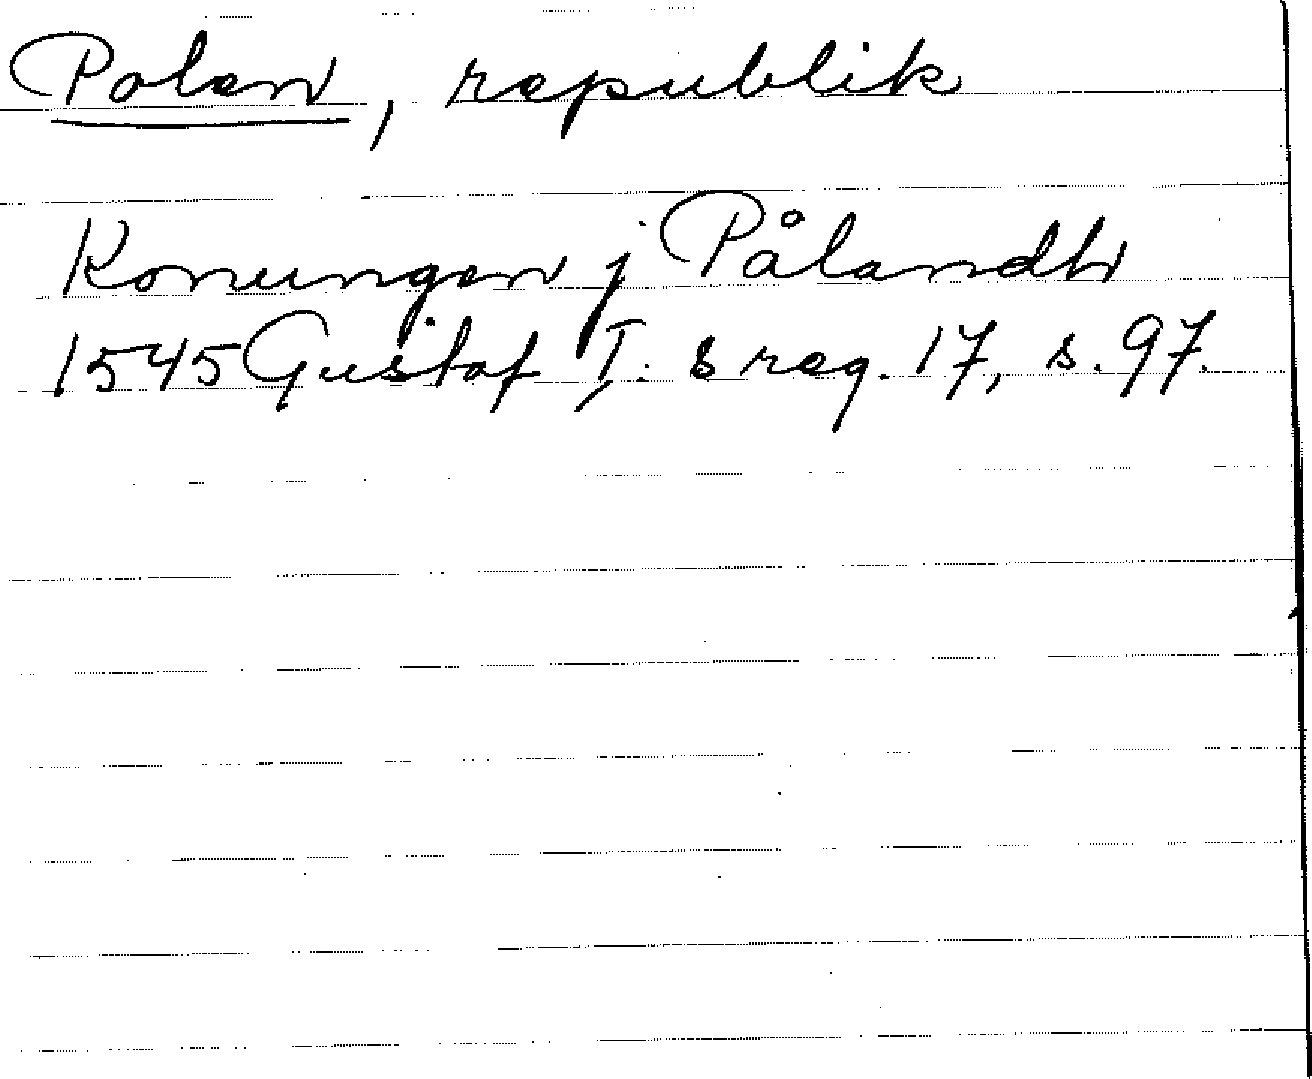 Polen, republik
Konungen j Pålandh
1545 Gustaf I:s reg. 17, s. 97.